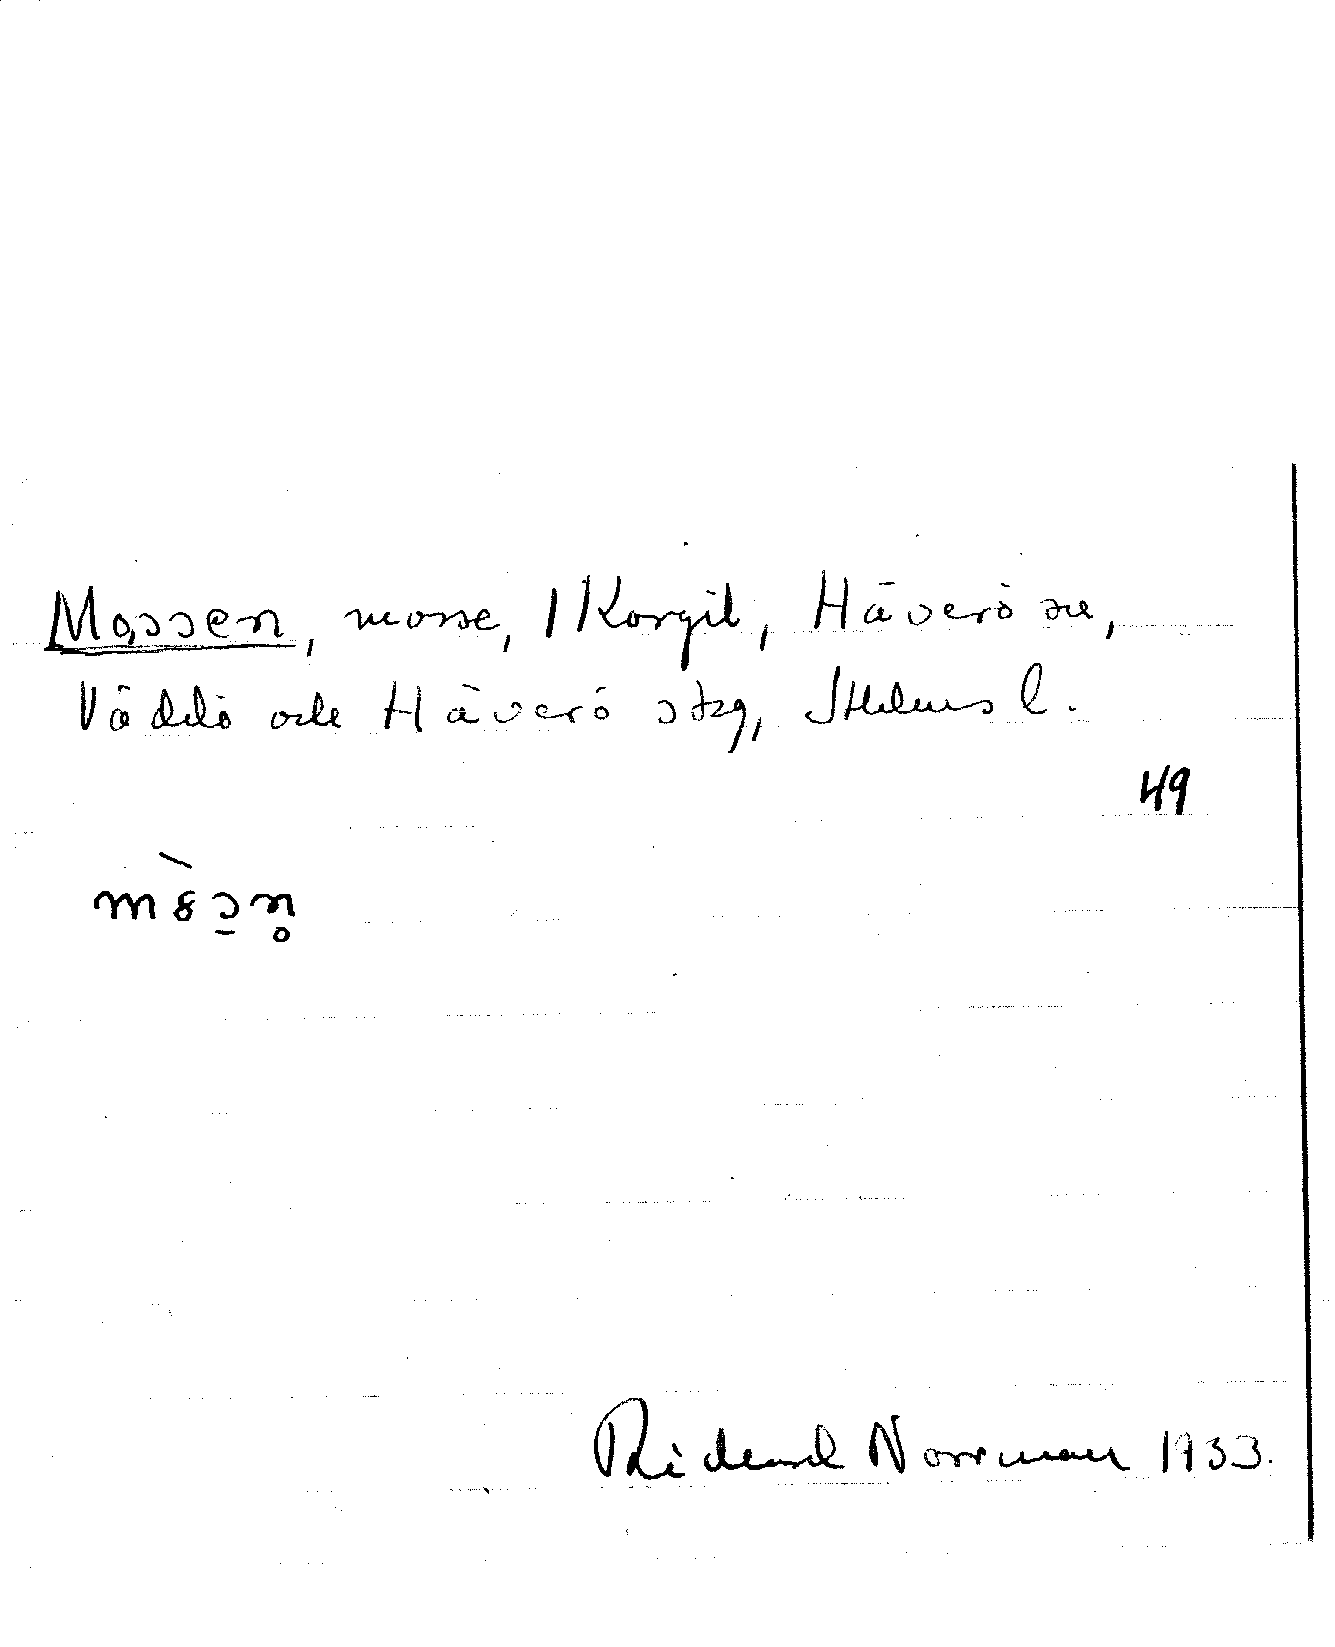 Mossen, mosse, 1 Korgil, Häverö sn,
Väddö och Häverö skg, Sthlms l.
49
Rickard Norrman 1933.